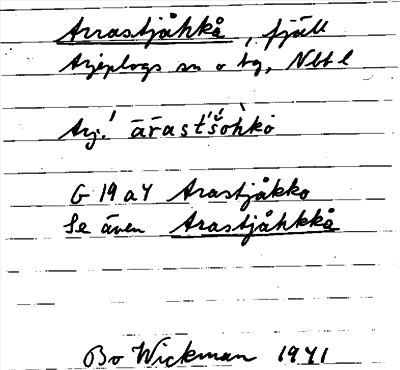 Arrastjåhkå, fjäll
Arjeplogs sn o tg, Nbtl
Arj. ārast́śohkò
G 19 a Y Arastjåkko
Se även Arastjåhkkå
Bo Wickman 1971